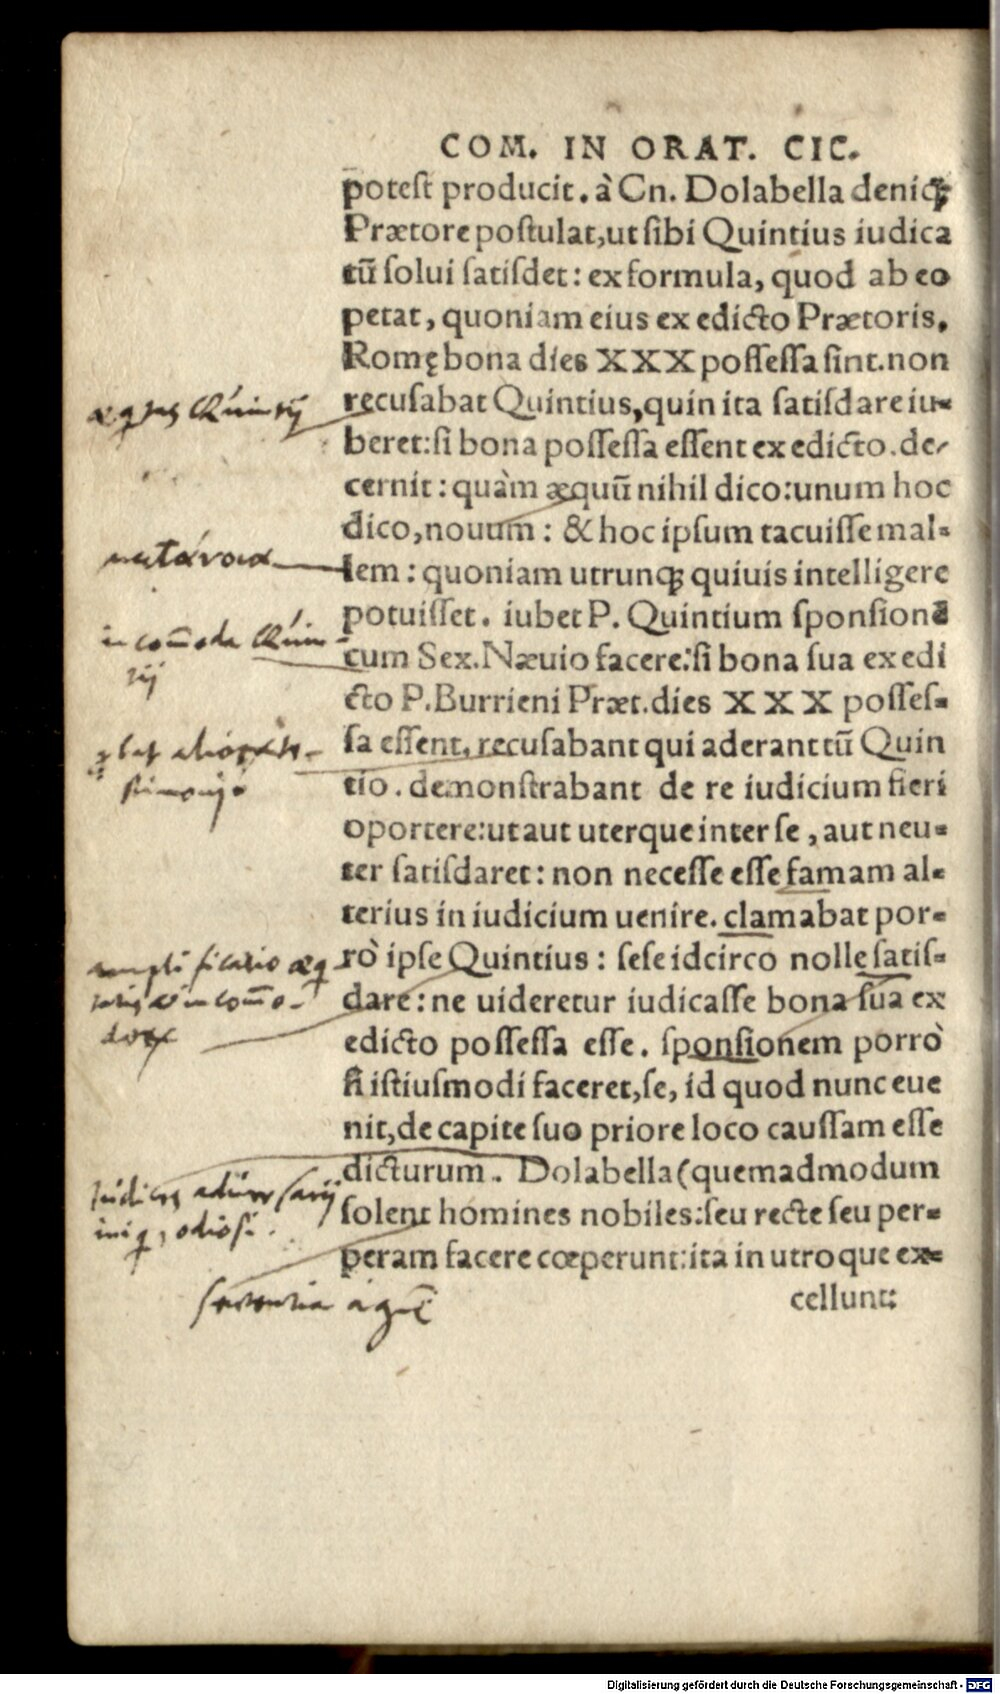 COM. IN ORAT. CIC.
potest producit. à Cn. Dolabella deniq;
Prætore postulat, ut sibi Quintius iudica
tũ solui satisdet: ex formula, quod ab eo
petat, quoniam eius ex edicto Prætoris,
Romę bona dies XXX possessa sint. non
recusabat Quintius, quin ita satisdare iu-
beret: si bona possessa essent ex edicto. de-
cernit: quàm æquũ nihil dico: unum hoc
dico, nouum: & hoc ipsum tacuisse mal-
lem: quoniam utrunq; quiuis intelligere
potuisset. iubet P. Quintium sponsionẽ
cum Sex. Næuio facere: si bona sua ex edi
cto P. Burrieni Præt. dies XXX posses-
sa essent, recusabant qui aderant tũ Quin
tio. demonstrabant de re iudicium fieri
oportere: ut aut uterque inter se, aut neu-
ter satisdaret: non necesse esse famam al-
terius in iudicium uenire. clamabat por-
rò ipse Quintius: sese idcirco nolle satis-
dare: ne uideretur iudicasse bona sua ex
edicto possessa esse. sponsionem porrò
si istiusmodi faceret, se, id quod nunc eue
nit, de capite suo priore loco caussam esse
dicturum. Dolabella (quemadmodum
solent homines nobiles: seu recte seu per-
peram facere cœperunt: ita in utroque ex-
cellunt:
Quintij
μετάνοια
incom̄oda Quin-
tij
amplificatio
odiosi.
Digitalisierung gefördert durch die Deutsche Forschungsgemeinschaft - DFG